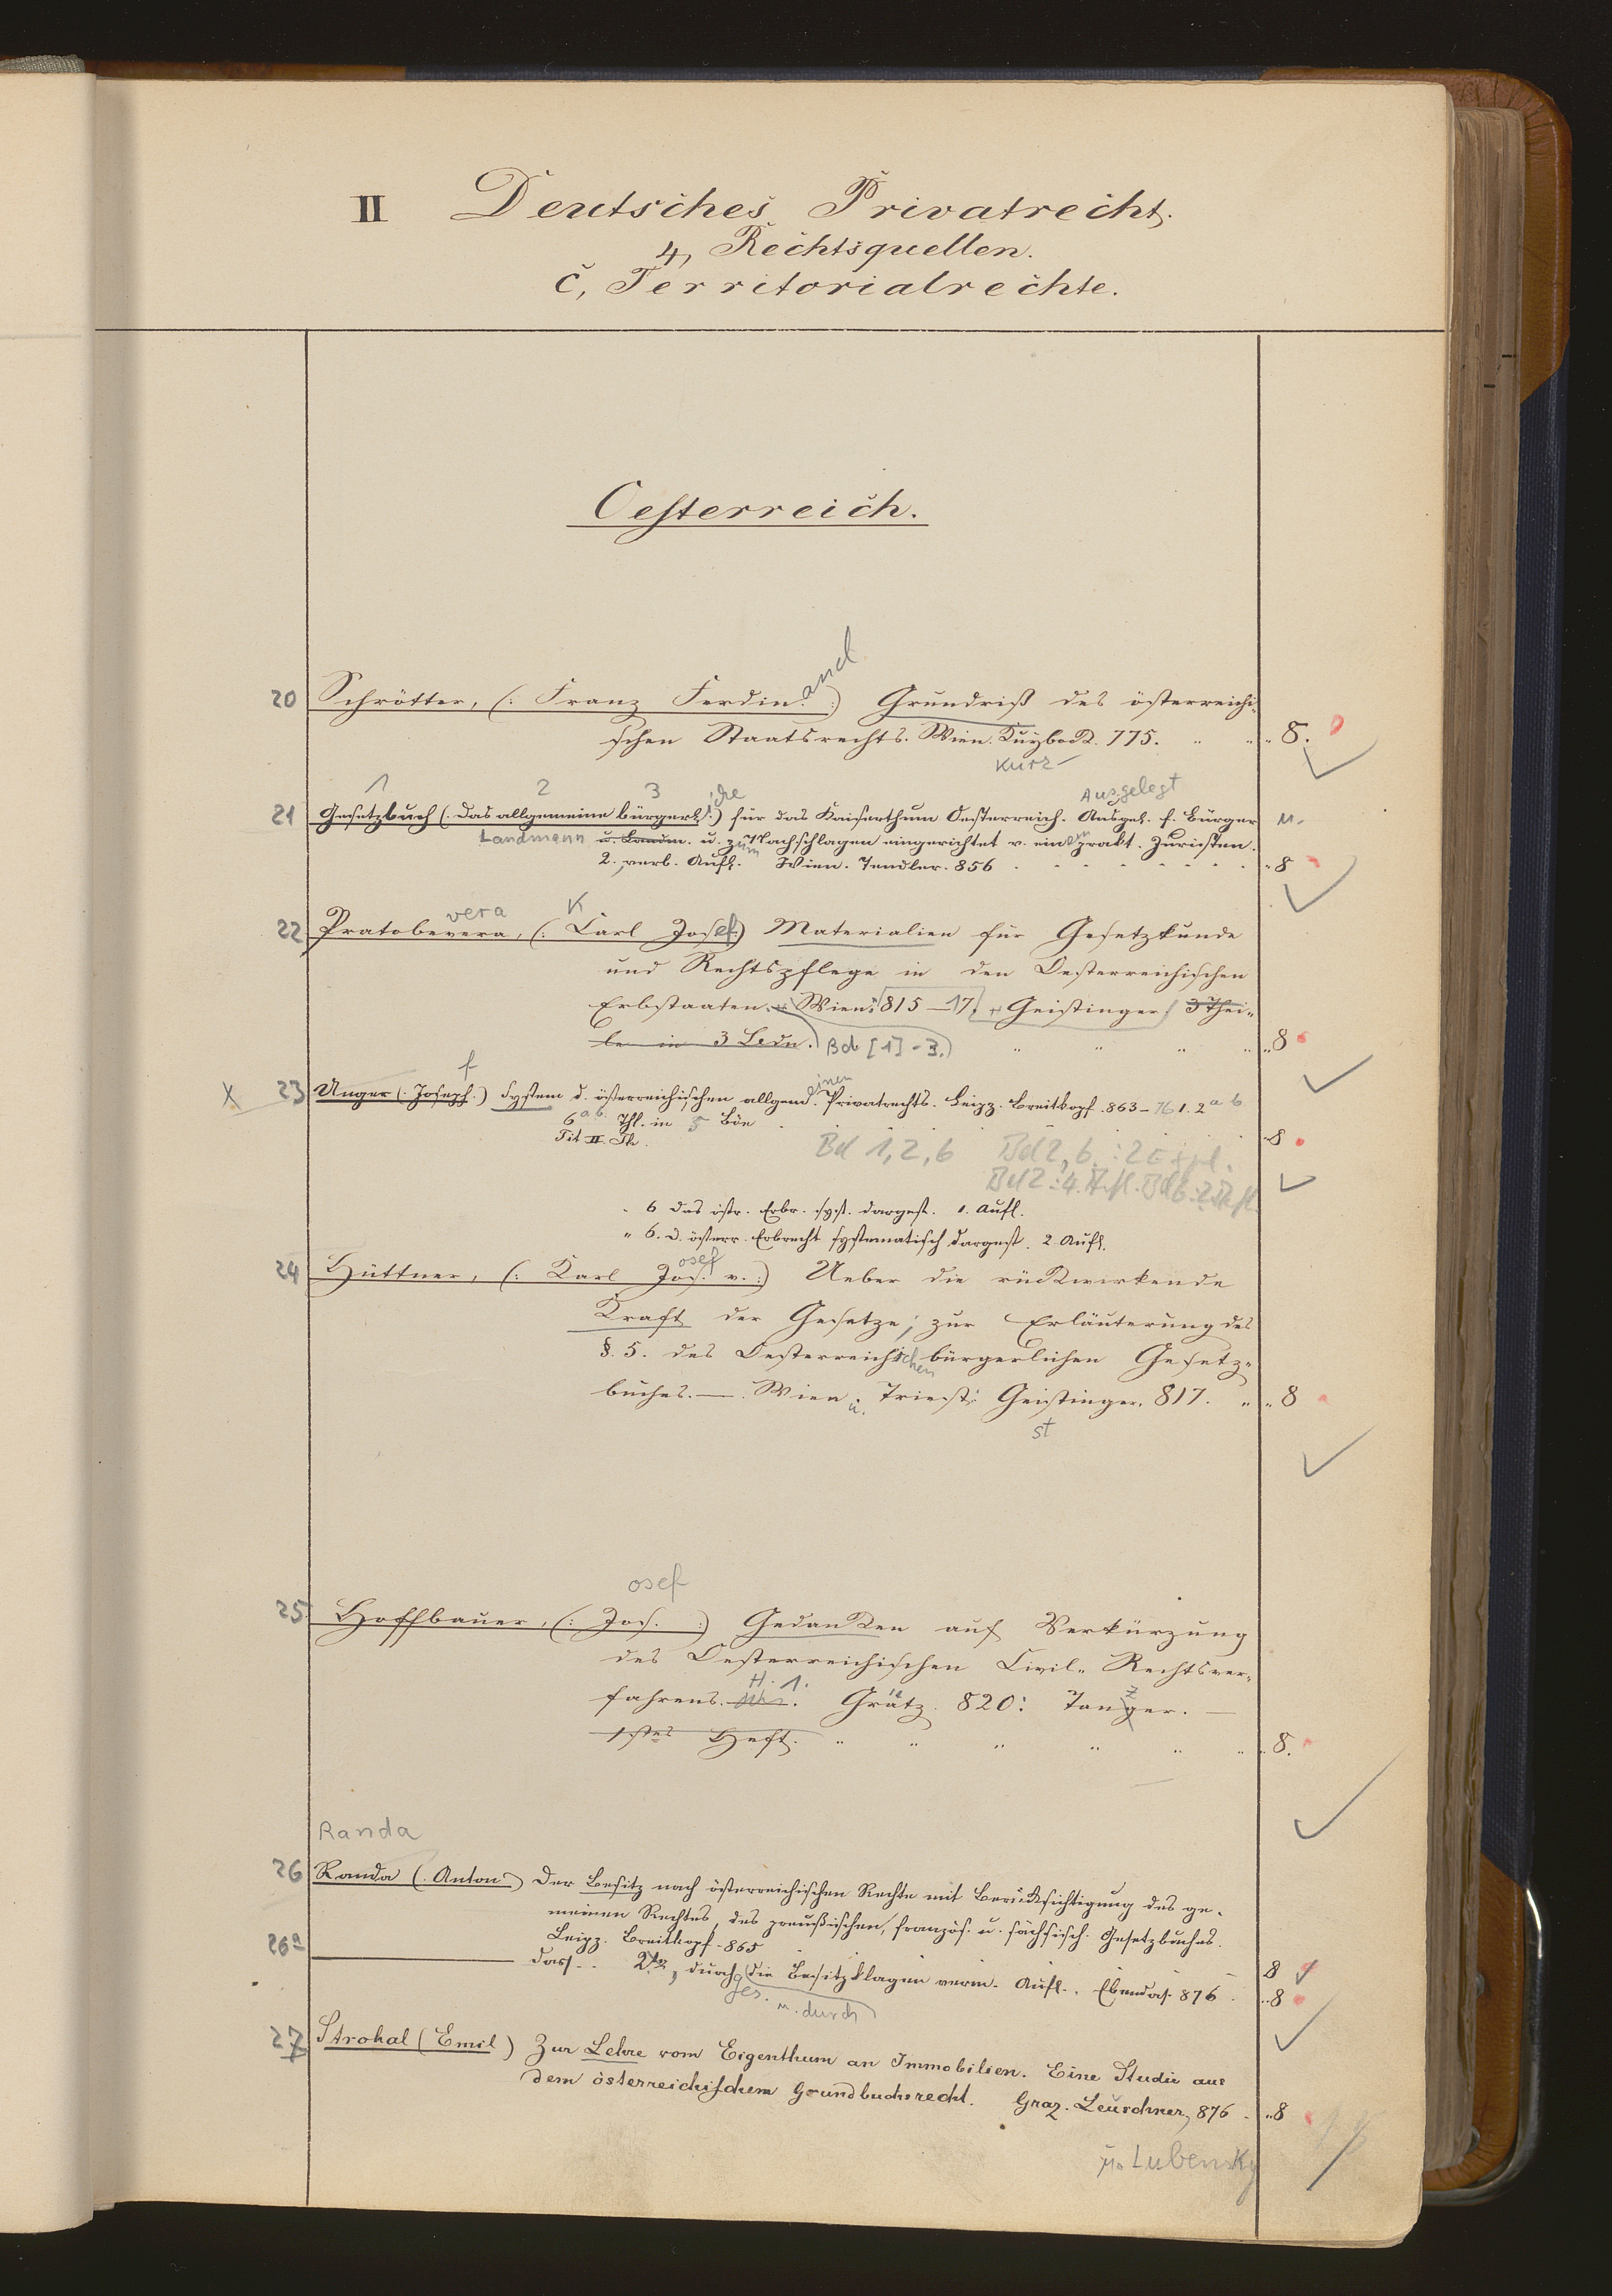 II Deutsches Privatrecht.
4, Rechtsquellen.
c, Territorialrechte.
Oesterreich.
and
20 Schrötter, (: Franz Ferdin. :) Grundriß des österreichi-
schen Staatsrechts. Wien. 775. 8.
Kurz
1 2 3 iche Ausgelegt
21 Gesetzbuch (. Das allgemeine bürgerl. :) für das Kaiserthum Oesterreich. Ausgel. f. Bürger u.
Landmann u. Landm. u. zum Nachschlagen eingerichtet v. einem prakt. Juristen.
2. verb. Aufl. Wien. Tendler. 856 8
vera K
22 Pratobevera, (: Carl Josef :) Materialien für Gesetzkunde
und Rechtspflege in den Oesterreichischen
Erbstaaten. Wien. 815–17. Geistinger 3 Thei-
le in 3 Bdn. Bd [1]-3. 8
f einen
X 23 Unger (. Joseph .) System d. österreichischen allgem. Privatrechts. Leipz. Breitkopf. 863–76 1. 2 a b
6 a b. Thl. in 5 Bde 8
Tit II. Th.
Bd 1,2,6 Bd 2,6 : 2 Expl.
Bd 2 : 4. Aufl. Bd 6 : 2. Aufl.
" 6 Das östr. Erbr. syst. dargest. 1. Aufl.
" 6. D. österr. Erbrecht systematisch dargest. 2. Aufl.
osef
24 Hüttner, (: Karl Jos. v. :) Ueber die rückwirkende
Kraft der Gesetze; zur Erläuterung des
§. 5. des Oesterreichischen bürgerlichen Gesetz-
buches. — Wien u. Triest: Geistinger. 817. 8
st
osef
25 Hoffbauer, (: Jos. :) Gedanken auf Verkürzung
des Oesterreichischen Civil-Rechtsver-
H. 1.
fahrens. Grätz. 820: Tanger. —
z
1stes Heft. 8.
Randa
26 Randa (. Anton .) Der Besitz nach österreichischen Rechte mit Berücksichtigung des ge-
meinen Rechtes, des preußischen, französ. u. sächsisch. Gesetzbuches.
Leipz. Breitkopf. 865 8
26a ——— Dass. 2te, durch die Besitzklagen verm. Aufl. Ebendas. 876 8
ges. u. durch
27 Strohal (Emil) Zur Lehre vom Eigenthum an Immobilien. Eine Studie aus
dem österreichischem Grundbuchsrecht. Graz. Leuschner, 876 8
u. Lubensky